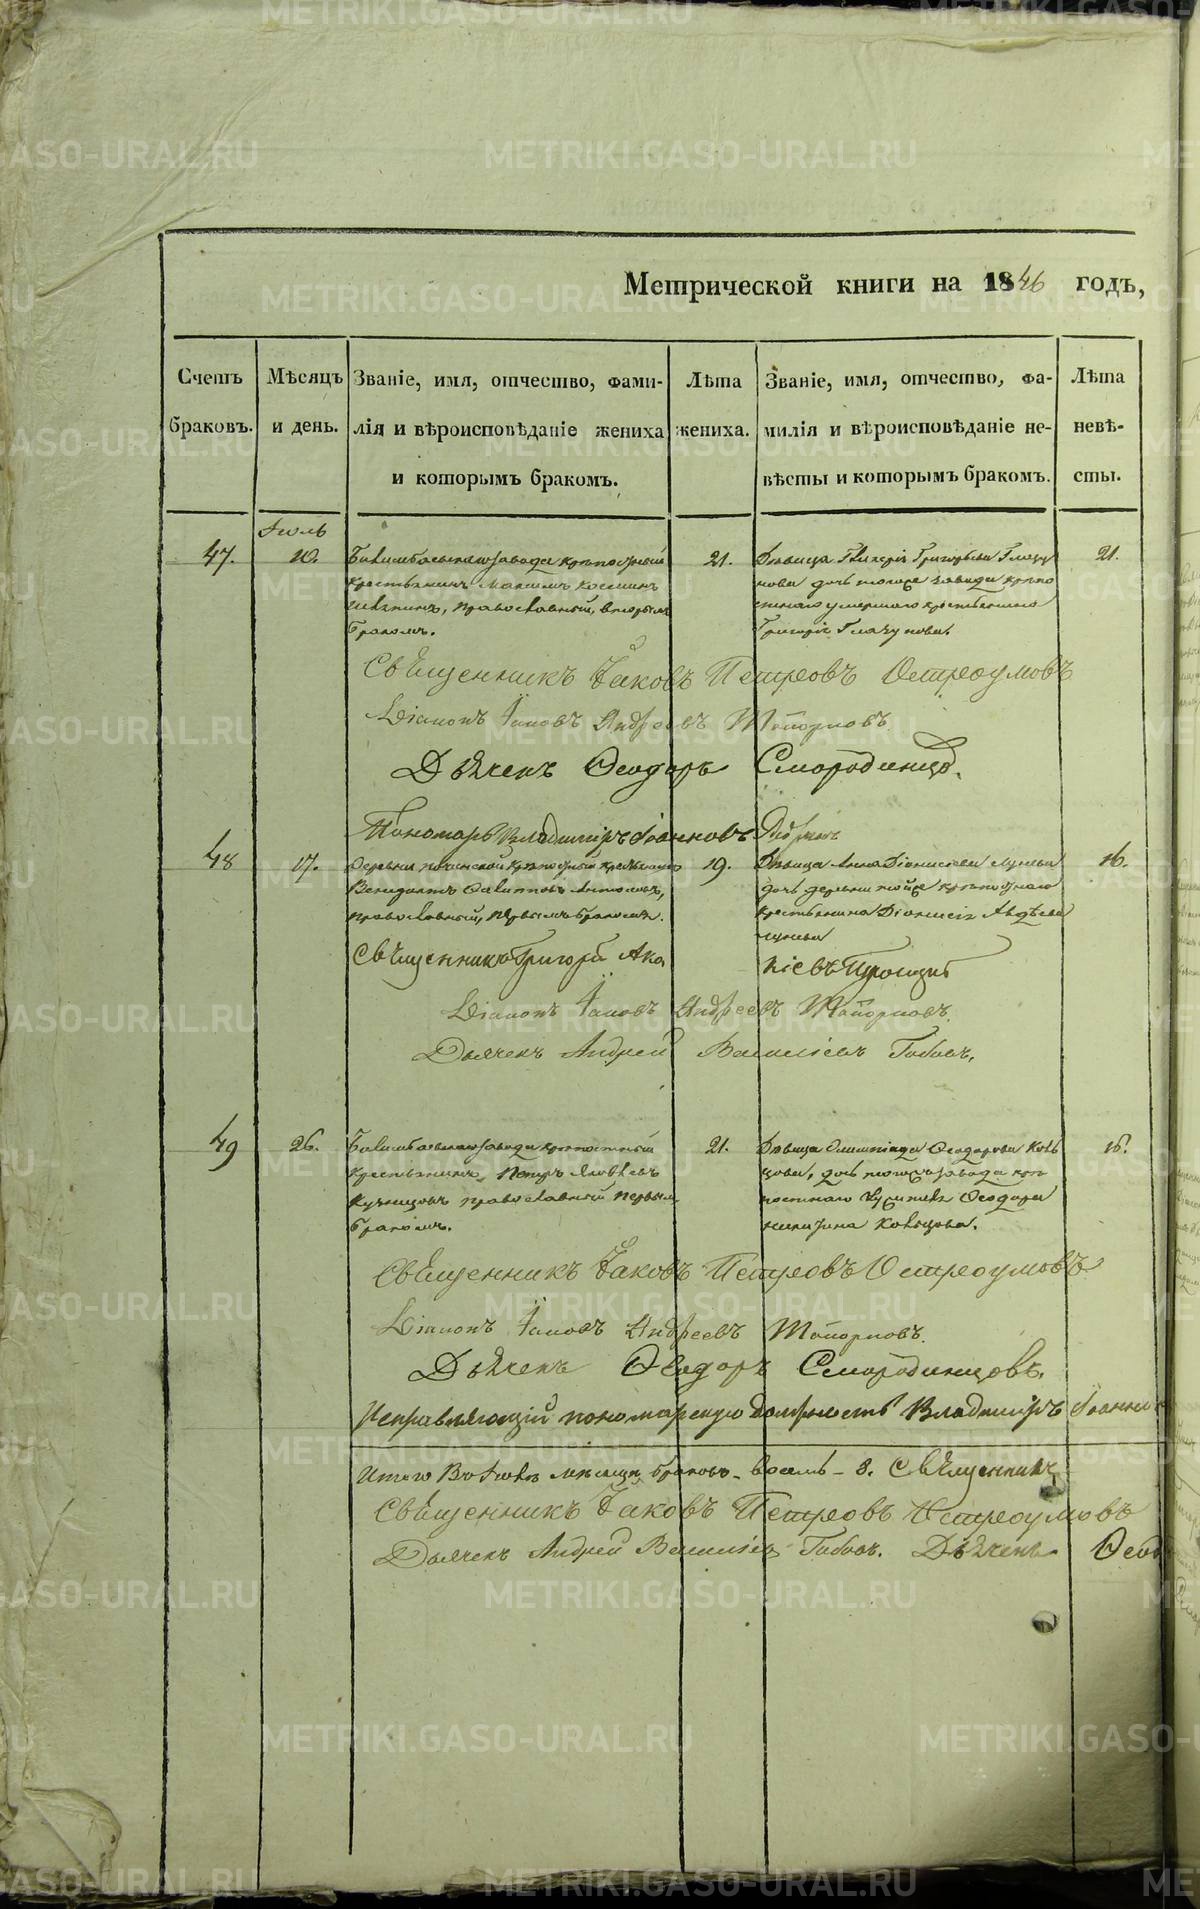 Метрической книги на 1846 годъ,
Счетъ браковъ.
Мѣсяцъ и день.
Званіе, имя, отчество, фами-
лія и вѣроисповѣданіе жениха
и которымъ бракомъ.
Лѣта жениха.
Званіе, имя, отчество, фа-
милія и вѣроисповѣданіе не-
вѣсты и которымъ бракомъ.
Лѣта
невѣ-
сты.
Іюль
47.
10.
Билимбаевскаго завода крѣпостный
крестьянинъ Максимъ Косминъ
православный, вторымъ
бракомъ.
21.
Дѣвица Гликерія Григорьева Глазу
нова дочь тогоже завода крѣпо
стнаго умершаго крестьянина
Григорія Глазунова.
21.
Священникъ Іаковъ Петровъ Остроумовъ
Діаконъ Іаковъ Андреевъ Топорковъ
Дьячекъ Ѳеодоръ Смородинцов.
Пономарь Владимиръ Іоанновъ
48
17.
Деревни крѣпостный крестьянинъ
православный, первымъ бракомъ.
19.
Дѣвица Анна Діонисіева
дочь деревни тойже крѣпостнаго
крестьянина Діонисія Авдѣева
16.
Священникъ Григорій
Діаконъ Іаковъ Андреевъ Топорковъ.
Дьячекъ Андрей Василіевъ
49
26.
Билимбаевскаго завода крѣпостный
крестьянинъ Петръ Яковлевъ
Кузнецовъ православный первымъ
бракомъ.
21.
Дѣвица Олимпіада Ѳеодорова Коль
цова, дочь тогожъ завода крѣ
постнаго Ѳеодора
Никитина Кольцова.
16.
Священникъ Іаковъ Петровъ Остроумовъ
Діаконъ Іаковъ Андреевъ Топорковъ.
Дьячекъ Ѳеодоръ Смородинцовъ.
Исправляющій пономарскую должность Владимиръ Іоанни
Итого въ Іюлѣ мѣсяцѣ браковъ - восемь - 8. Священникъ
Священникъ Іаковъ Петровъ Остроумовъ
Дьячекъ Андрей Василіевъ Дьячекъ Ѳеод
METRIKI.GASO-URAL.RU